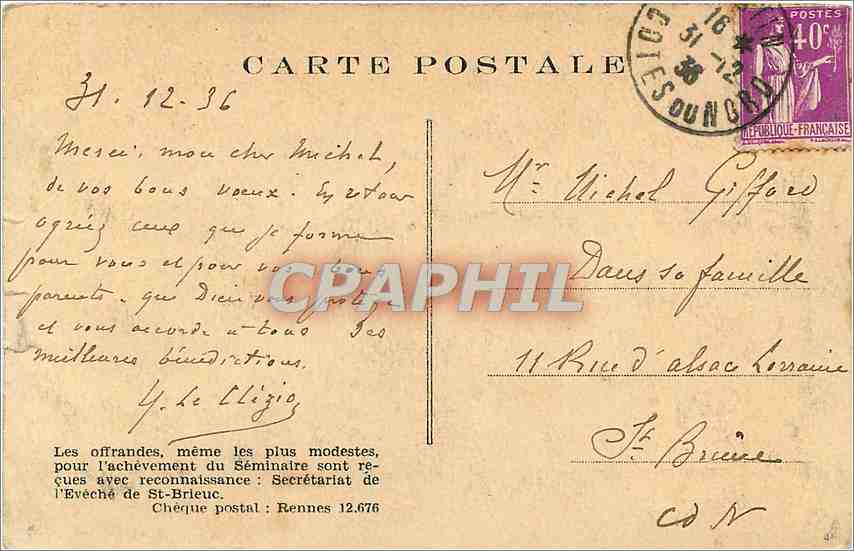 CARTE POSTALE
16
31-12
36
COTES DU NORD
POSTES
40c
REPUBLIQUE-FRANÇAISE
31.12-36
Merci, mon cher Michel,
de vos bons vœux. En retour
agréez ceux que je forme
pour vous et pour vos bons
parents. que Dieu vous protège
et vous accorde à tous Ses
meilleures bénédictions.
Y. Le Clézio
Mr Michel Gifford
Dans sa famille
11 Rue d'alsac Lorraine
St Brieuc
C d N
CPAPHIL
Les offrandes, même les plus modestes,
pour l'achèvement du Séminaire sont re-
çues avec reconnaissance : Secrétariat de
l'Evêché de St-Brieuc.
Chèque postal : Rennes 12.676